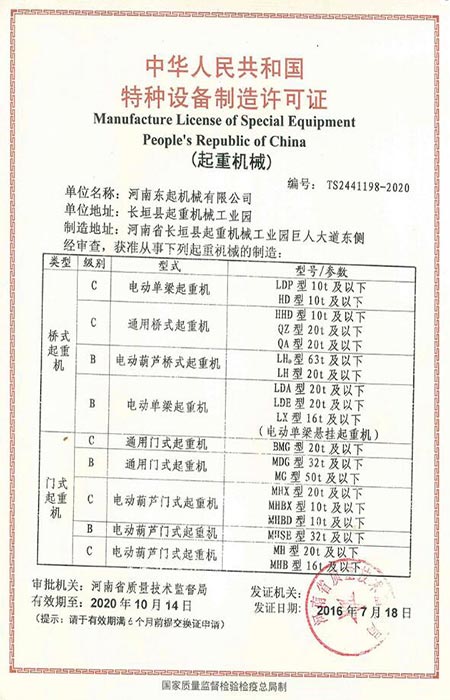 中华人民共和国
特种设备制造许可证
Manufacture License of Special Equipment
People's Republic of China
(起重机械)
编号: TS2441198-2020
单位名称: 河南东起机械有限公司
单位地址: 长垣县起重机械工业园
制造地址: 河南省长垣县起重机械工业园区巨人大道东侧
经审查, 获准从事下列起重机械的制造:
类型 级别 型式 型号/参数
桥式起重机
C 电动单梁起重机 LDP 型 10t 及以下
HD 型 10t 及以下
C 通用桥式起重机 HHD 型 10t 及以下
QZ 型 20t 及以下
QA 型 20t 及以下
B 电动葫芦桥式起重机 LH 型 63t 及以下
LH 型 20t 及以下
B 电动单梁起重机 LDA 型 20t 及以下
LDE 型 20t 及以下
LX 型 16t 及以下
(电动单梁悬挂起重机)
门式起重机
C 通用门式起重机 BMG 型 20t 及以下
B 通用门式起重机 MDG 型 32t 及以下
MG 型 50t 及以下
C 电动葫芦门式起重机 MHX 型 20t 及以下
MHBX 型 10t 及以下
MHBD 型 10t 及以下
B 电动葫芦门式起重机 MHSE 型 32t 及以下
C 电动葫芦门式起重机 MH 型 20t 及以下
MHB 型 16t 及以下
审批机关: 河南省质量技术监督局
发证机关:
有效期至: 2020 年 10 月 14 日
发证日期: 2016 年 7 月 18 日
(提示: 请于有效期满 6 个月前提交换证申请)
国家质量监督检验检疫总局制